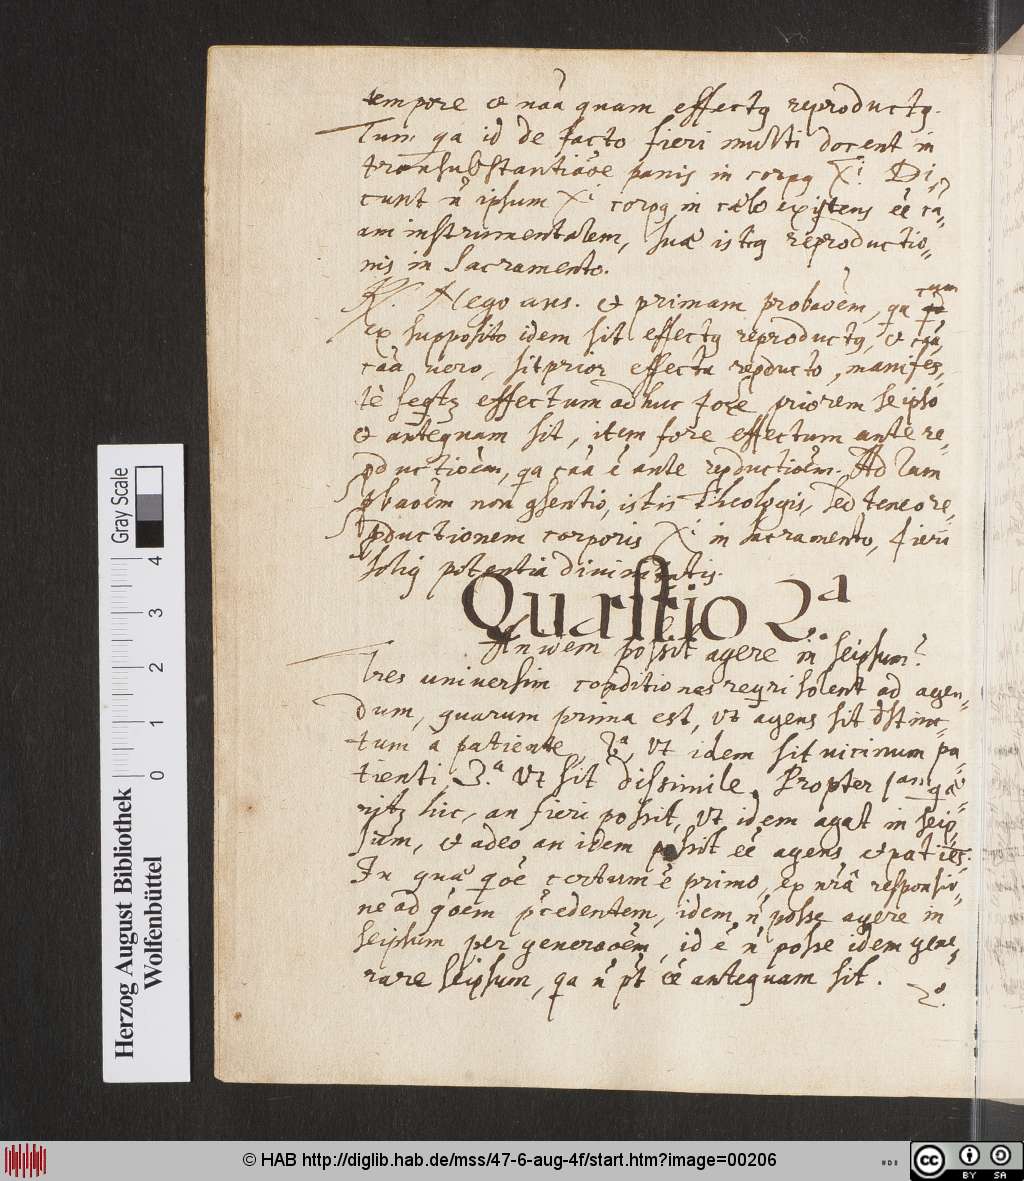 tempore et naã quam effectꝗ reproductꝗ.
Tum qa id de facto fieri multi docent in
transubstantiaõe panis in corpꝗ Xi. Di-
cunt n̄ ipsum Xi corpꝗ in cælo existens eē cã-
am instrumentalem, suæ istiꝗ reproductio-
nis in Sacramento.
R. Nego ans. et primam probaõem, qa cum
ex supposito idem sit effectꝗ reproductꝗ, et caã,
caã vero, sit prior effectu reproducto, manifes-
tè seqtꝫ effectum adhuc fore priorem seipso
et antequam sit, item fore effectum ante re-
productioẽm, qa caã ẽ ante reproductioẽm. Ad Tam
probaõem non consentio, istis Theologis, sed teneo re-
productionem corporis Xi in sacramento, fieri
soliꝗ potentia divinitatis.
Quæstio 2a
An idem possit agere in seipsum?
Tres universim conditiones requiri solent ad agen-
dum, quarum prima est, ut agens sit distinc-
tum à patiente, 2a, Ut idem sit vicinum pa-
tienti 3.a Ut sit dissimile. Propter 1am quæ-
ritꝫ hic, an fieri possit, ut idem agat in seip-
sum, et adeo an idem possit eē agens et patiẽs.
In qua qõe certum ẽ primo, ex nr̃a responsio-
ne ad qõem præcedentem, idem ñ posse agere in
seipsum per generaõem, id ẽ ñ posse idem gene-
rare seipsum, qa ñ pt̃ eē antequam sit.
2º.
Gray Scale
4
3
2
1
0
Herzog August Bibliothek
Wolfenbüttel
© HAB http://diglib.hab.de/mss/47-6-aug-4f/start.htm?image=00206
cc
BY SA